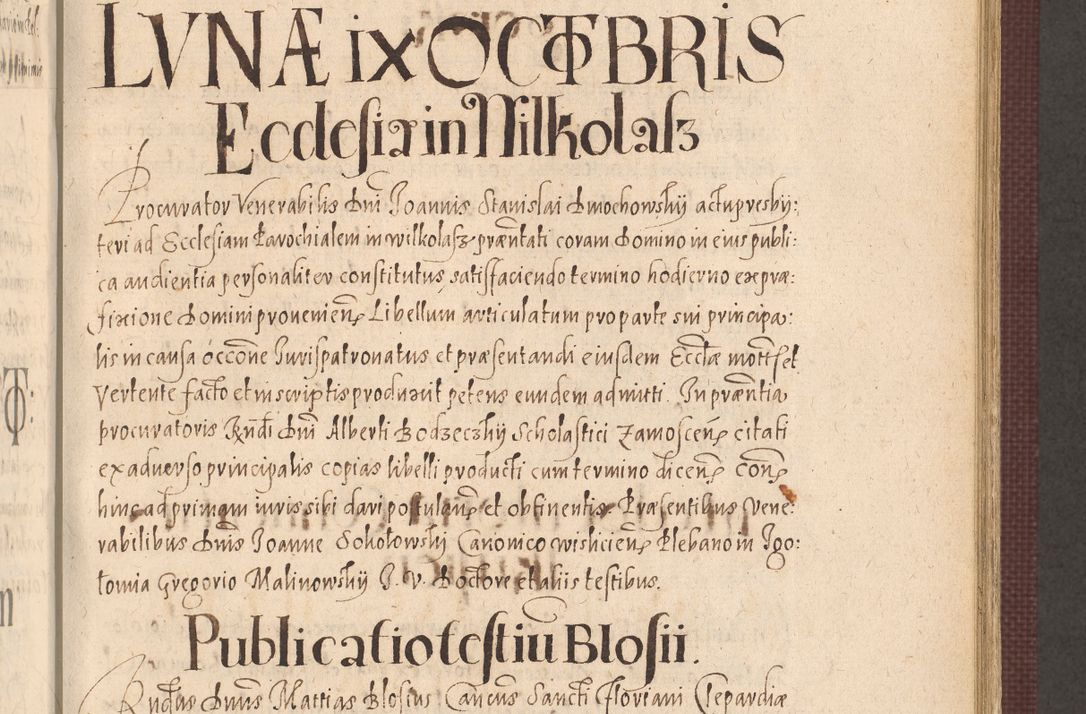 LVNÆ ix OCTOBRIS
Ecclesiæ in Wilkolasz
Procurator Venerabilis Dnī Joannis Stanislai Dmochowskij actu presby:
teri ad Ecclesiam Parochialem in wilkolasz præntati coram Domino in eius publi:
ca audientia personaliter constitutus, satisfaciendo termino hodierno ex præ:
fixione Domini provenien̄ Libellum articulatum pro parte sui principa:
lis in causa occone Jurispatronatus et præsentandi eiusdem Ecctæ mott set
Vertente facto et in scriptis produxit petens eundem admitti. In præntia
procuratoris Rndi Dnī Alberti Bodzeczkij Scholastici Zamoscen̄ citati
ex adverso principalis copias libelli producti cum termino dicen̄ con̄
hinc ad primam iuris sibi dari postulan̄ et obtinentis. Præsentibus Vene:
rabilibus Dnis Joanne Sokołowskij Canonico wislicien̄ Plebano in Igo:
tomia Gregorio Malinowskij J. V. Doctore et aliis testibus.
Publicatio testiū Blosii.
Rndus Dnus Mattias Blosius Cancus Sancti Floriani Clepardiæ